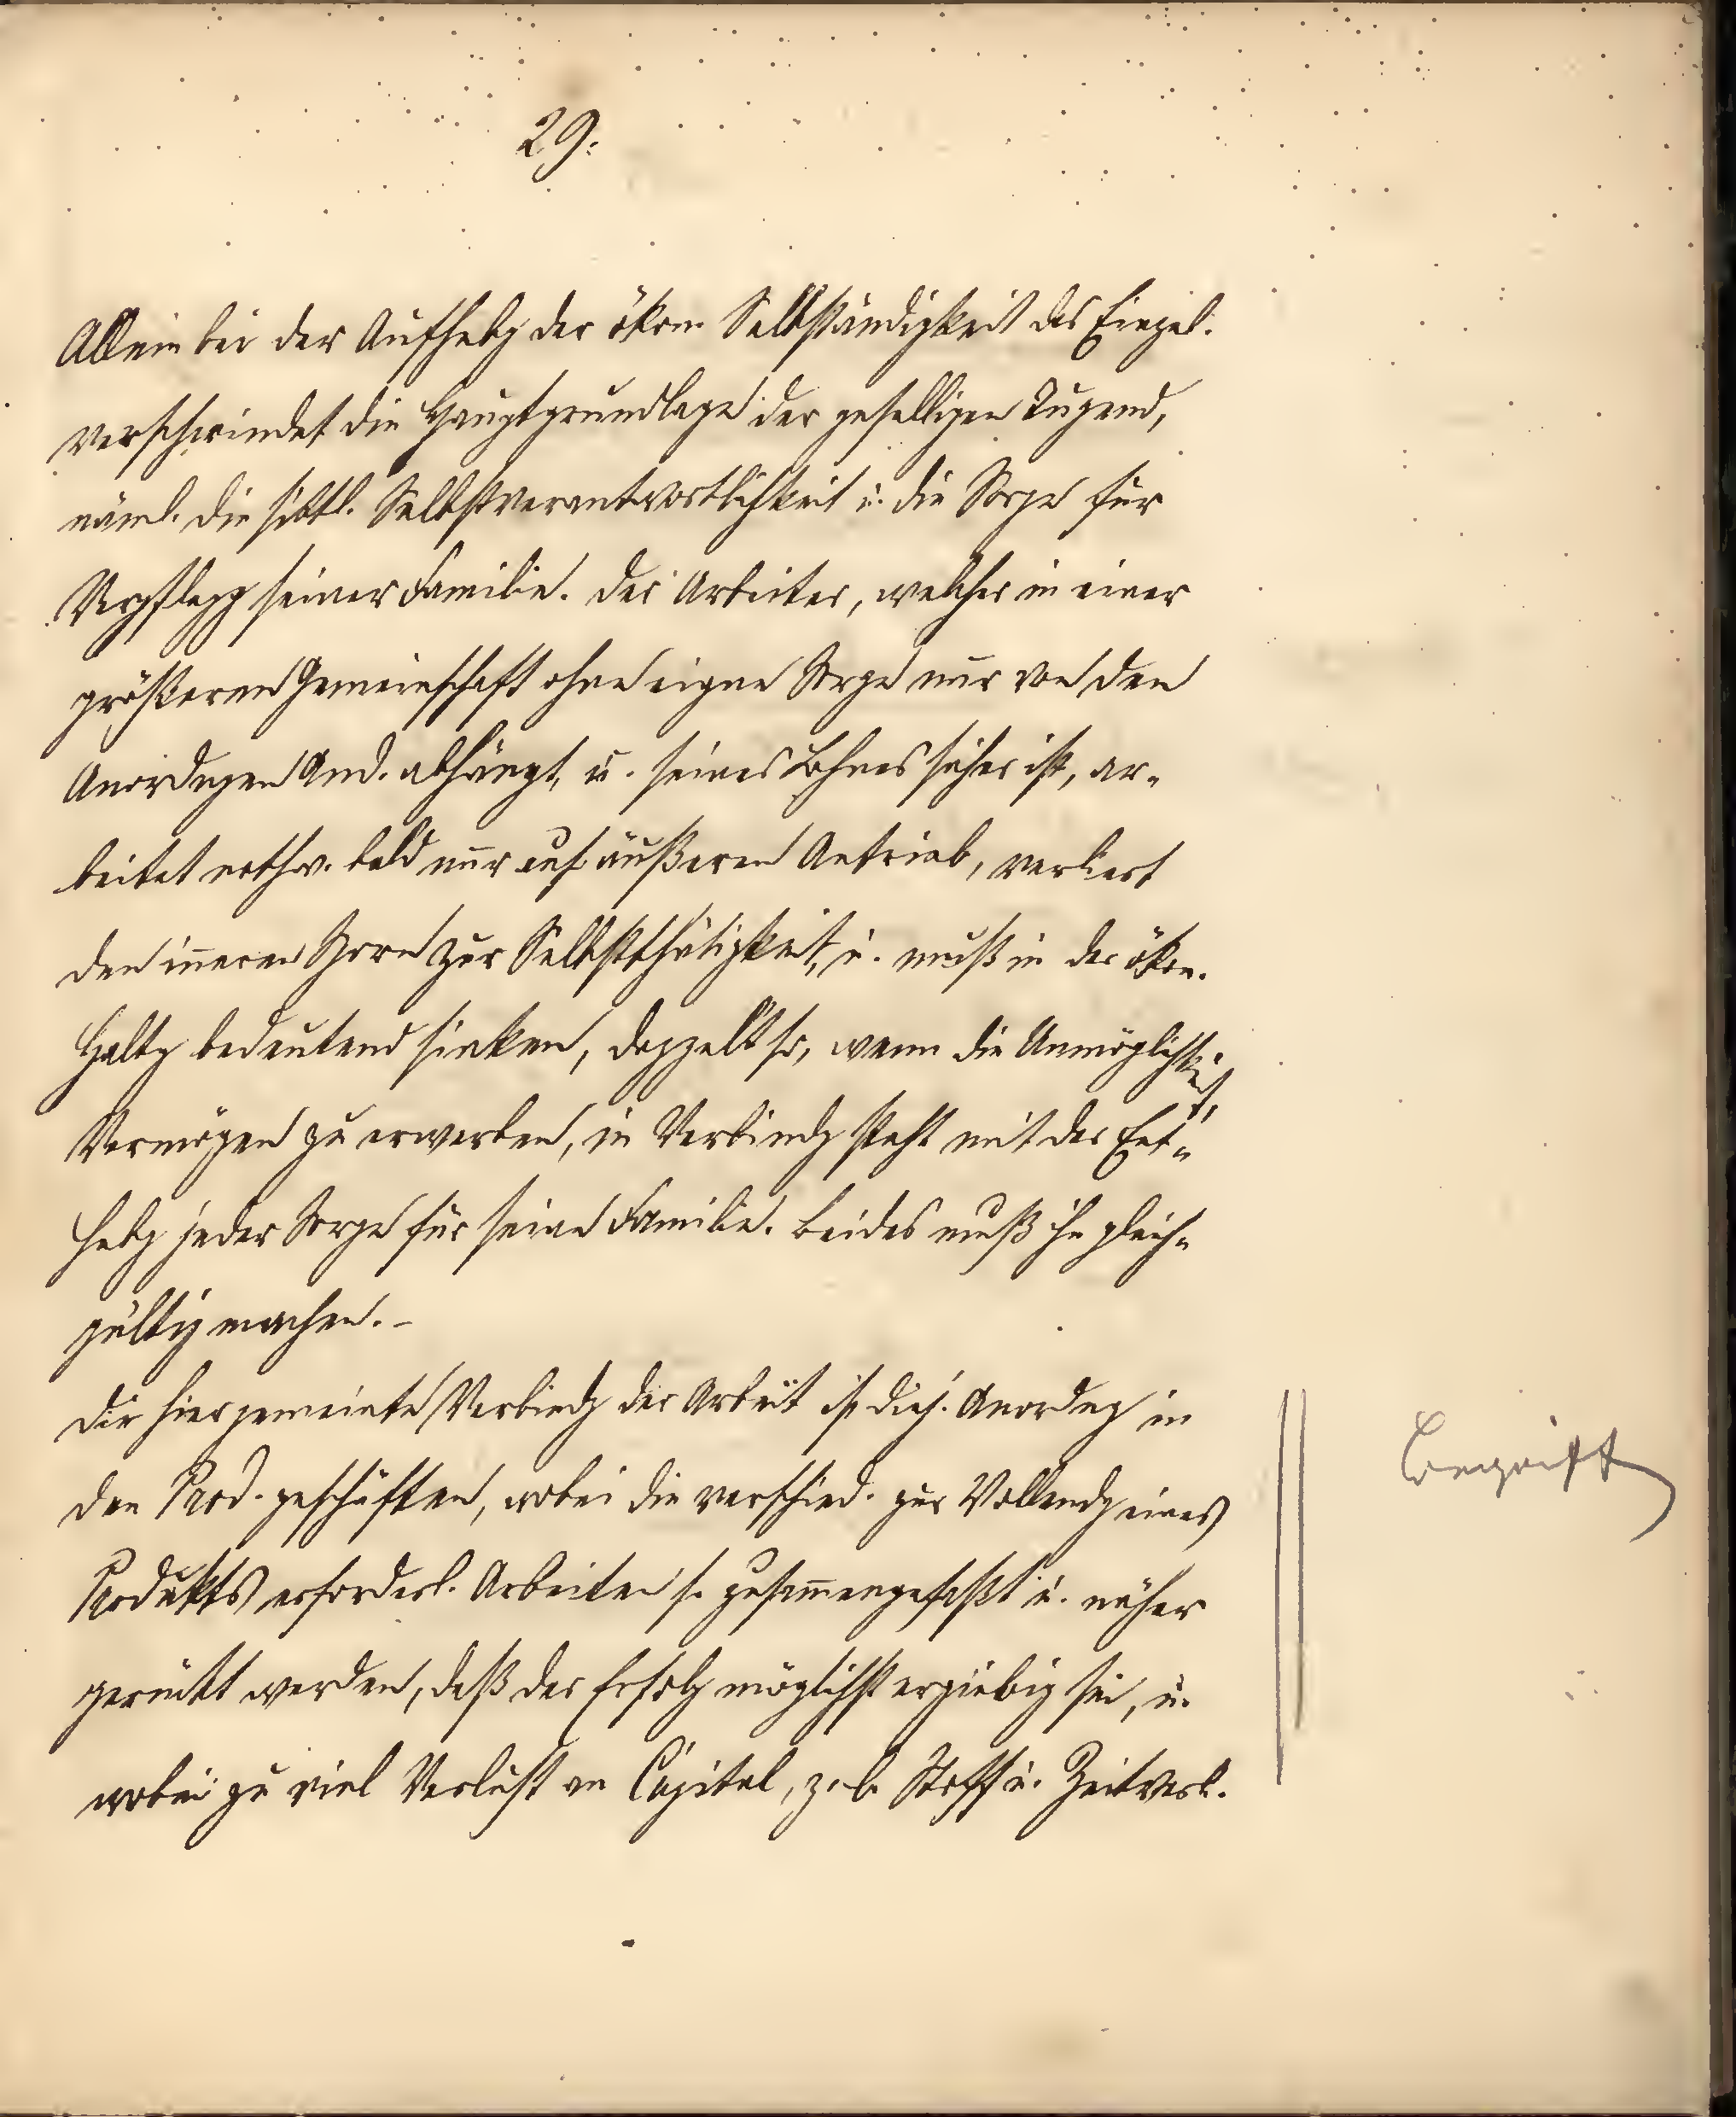 29.
Allein bei der Aufhebg der ökon. Selbständigkeit des Einzel.
verschwindet die Hauptgrundlage der geselligen Tugend,
näml. die sittl. Selbstverantwortlichkeit u. die Sorge für
Verpflegg seiner Familie. Der Arbeiter, welcher in einer
größeren Gemeinschaft ohne eigne Sorge nur von den
Anordngen And. abhängt, u. seines Lohnes sicher ist, ar-
beitet nothw. bald nur auf äußeren Antrieb, verliert
den inneren Sporn zur Selbstthätigkeit, u. muß in der ökon.
Haltg bedeutend sinken, doppelt so, wenn die Unmöglichkeit,
Vermögen zu erwerben, in Verbindg steht mit der Ent-
hebg jeder Sorge für seine Familie. Beides muß ihn gleich-
gültig machen. -
Die hier gemeinte Verbindg der Arbeit ist diej. Anordng in
den Prod. geschäften, wobei die verschied. zur Vollendg eines
Produkts erforderl. Arbeiten s. zusammengefaßt u. näher
gerückt werden, daß der Erfolg möglichst ergiebig sei, u.
wobei zu viel Verlust an Capital, z. b. Stoff u. Zeitverl.
Begriff